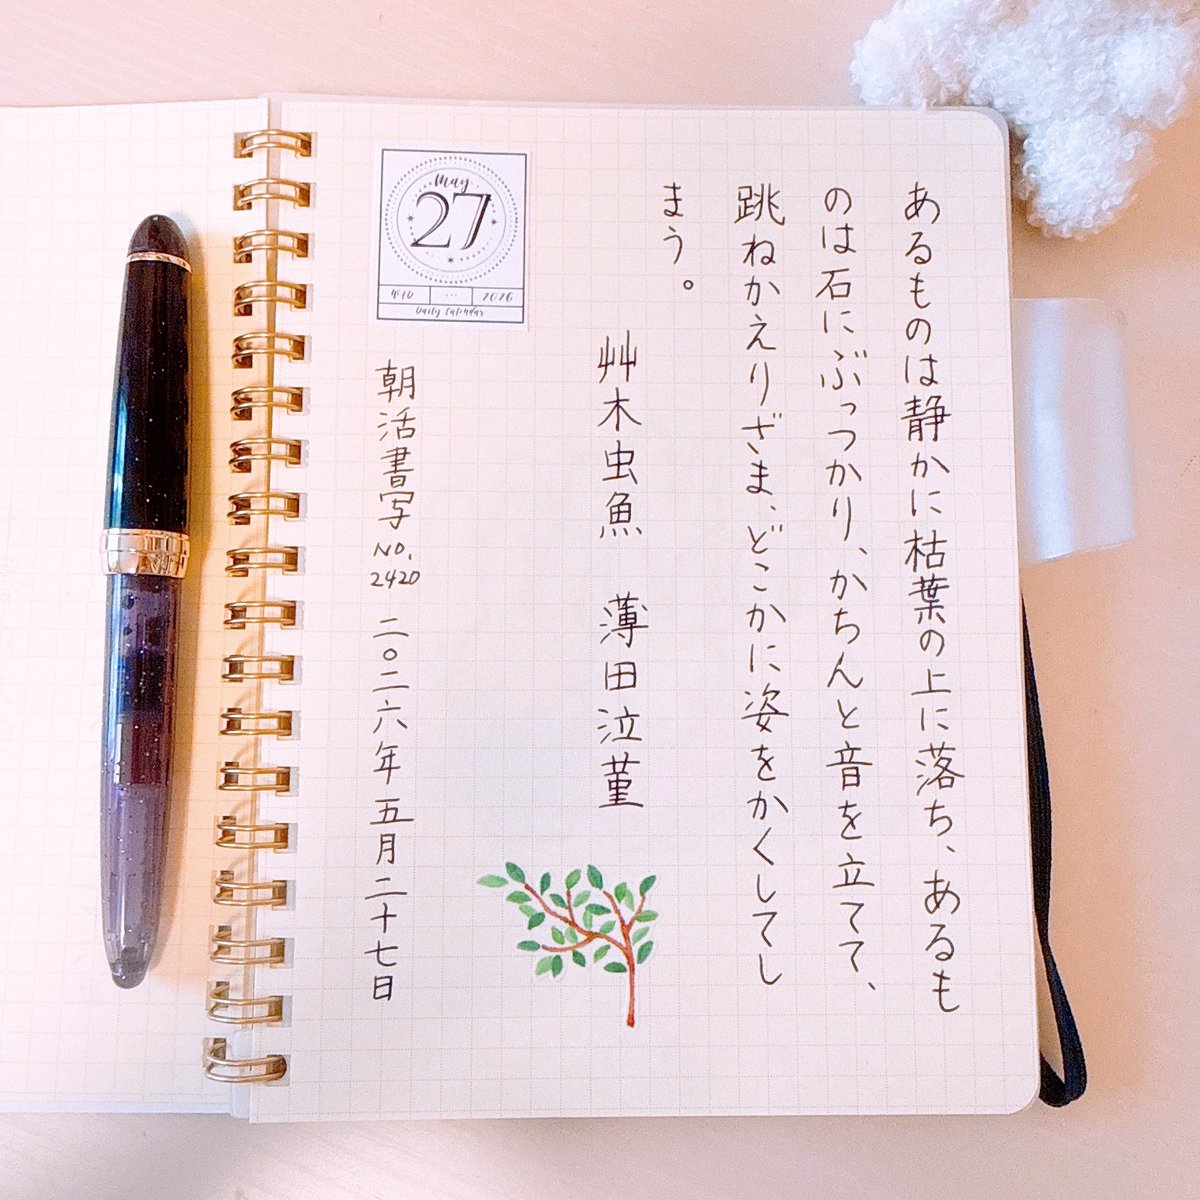 あるものは静かに枯葉の上に落ち、あるも
のは石にぶっつかり、かちんと音を立てて、
跳ねかえりざま、どこかに姿をかくしてし
まう。
艸木虫魚　薄田泣菫
May
27
2026
Daily Calendar
朝活書写 NO. 2420 二〇二六年五月二十七日